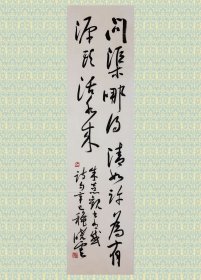 问渠哪得清如许为有
源头活水来
朱熹观书有感